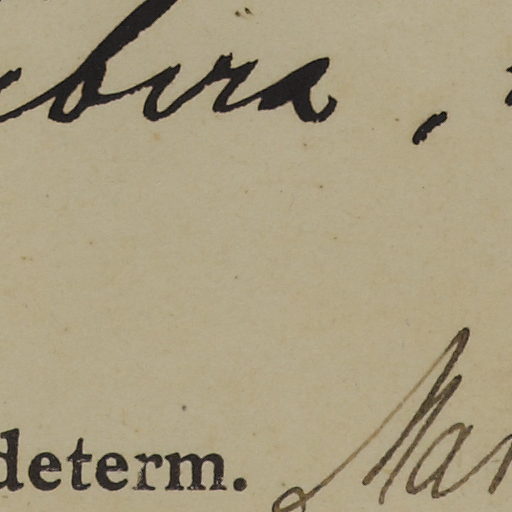 bira,
determ. Mar